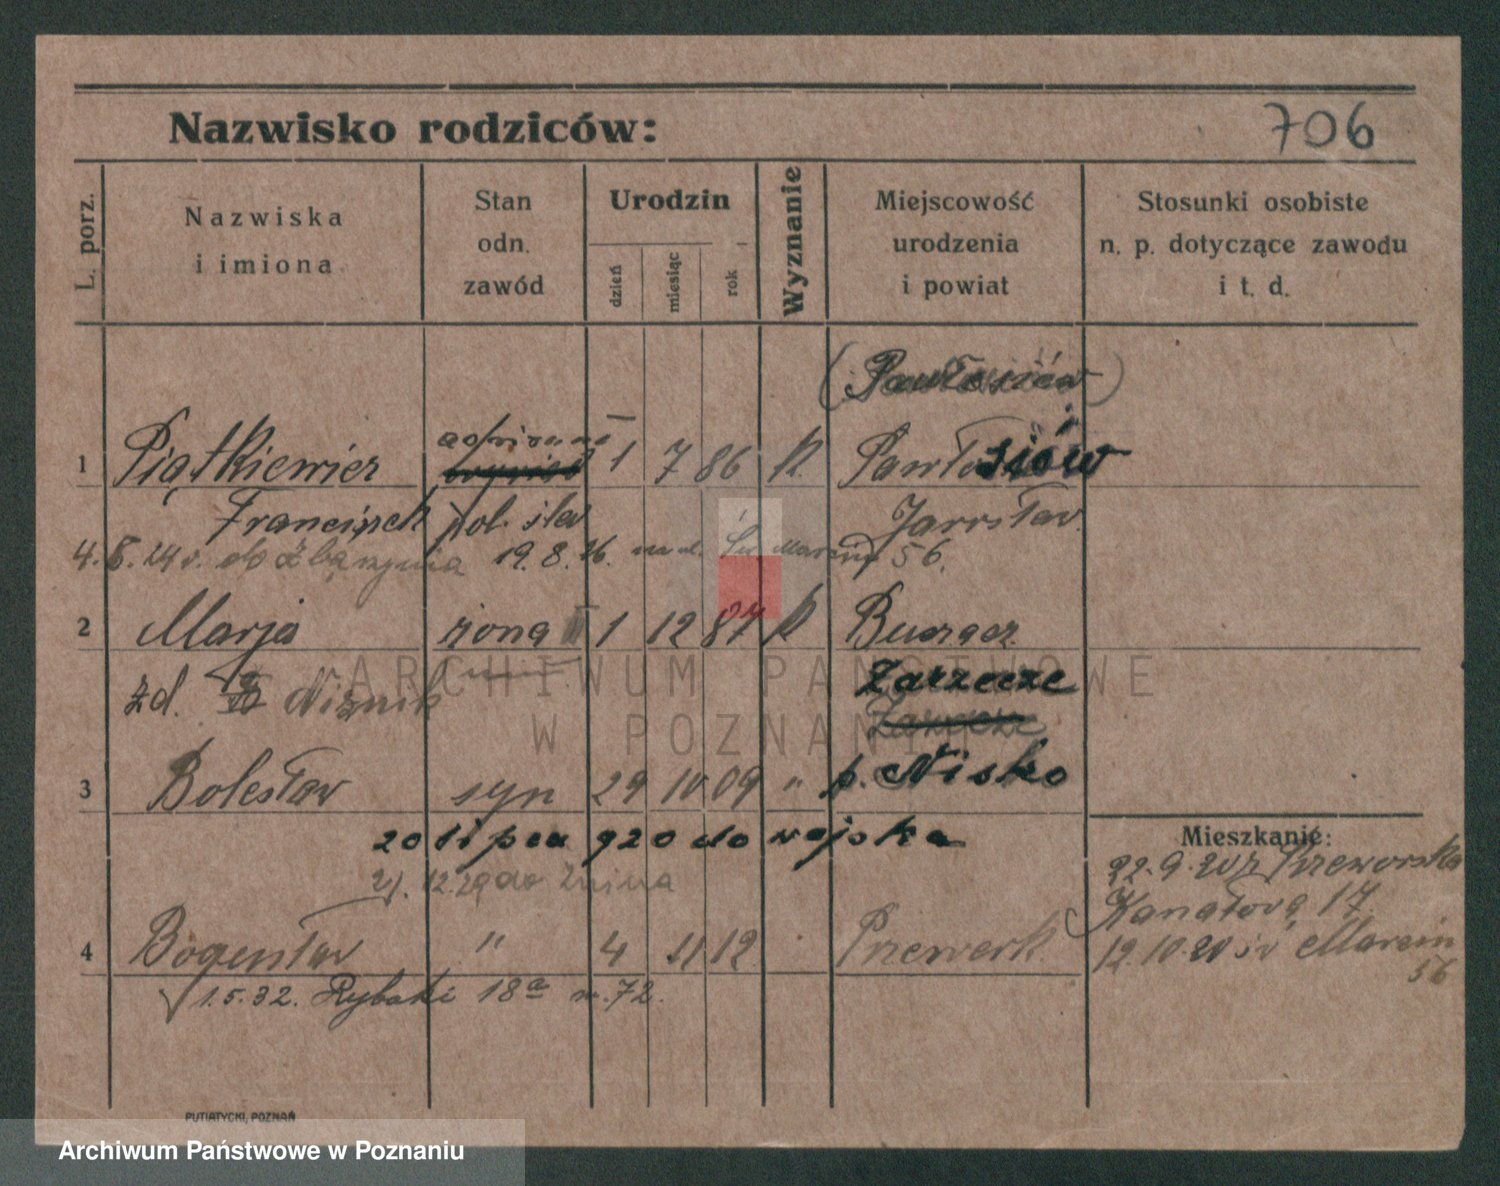 Nazwisko rodziców:
706
L. porz.
Nazwiska
i imiona
Stan
odn.
zawód
Urodzin
dzień
miesiąc
rok
Wyznanie
Miejscowość
urodzenia
i powiat
Stosunki osobiste
n. p. dotyczące zawodu
i t. d.
(Pawłosiów)
1 Piątkiewicz 1 7 86 k. Pawłosiów
Franciszek pol. Jarosław
4. 5. 24 r. do Zbąszynia 19. 8. 26. na ul. Św Marcin 56.
2 Marja żona 1 12 87 k
zd. Niżnik Zarzecze
3 Bolesław syn 29 10 09 " p. Nisko
20 lipca 920 do wojska
21. 12. 29 do Żnina
Mieszkanie:
22. 9. 20 z Przeworska
Kanałowa 17
12. 10. 20 św Marcin
56
4 Bogusław " 4 11 12 Przeworsk
1. 5. 32. Rybaki 18a m. 72.
PUTIATYCKI, POZNAŃ
ARCHIWUM PAŃSTWOWE
W POZNANIU
Archiwum Państwowe w Poznaniu